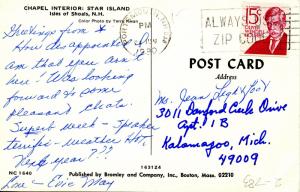 CHAPEL INTERIOR: STAR ISLAND
Isles of Shoals, N.H.
Color Photo by Terry
Greetings from *
How disappointed
am that you ain't
here! Was looking
forward to some
pleasant chats.
Super week - Speaker
terrific - weather Hot.
Next year???
Love - Evie May
NC 1640
163124
Published by Bromley and Company, Inc., Boston, Mass. 02210
PM
1980
ALWAYS
ZIP CODE
15¢
POST CARD
Address
Ms. Jean Lightfoot
3011 Danford Circle Drive
Apt. 1B
Kalamazoo, Mich.
49009